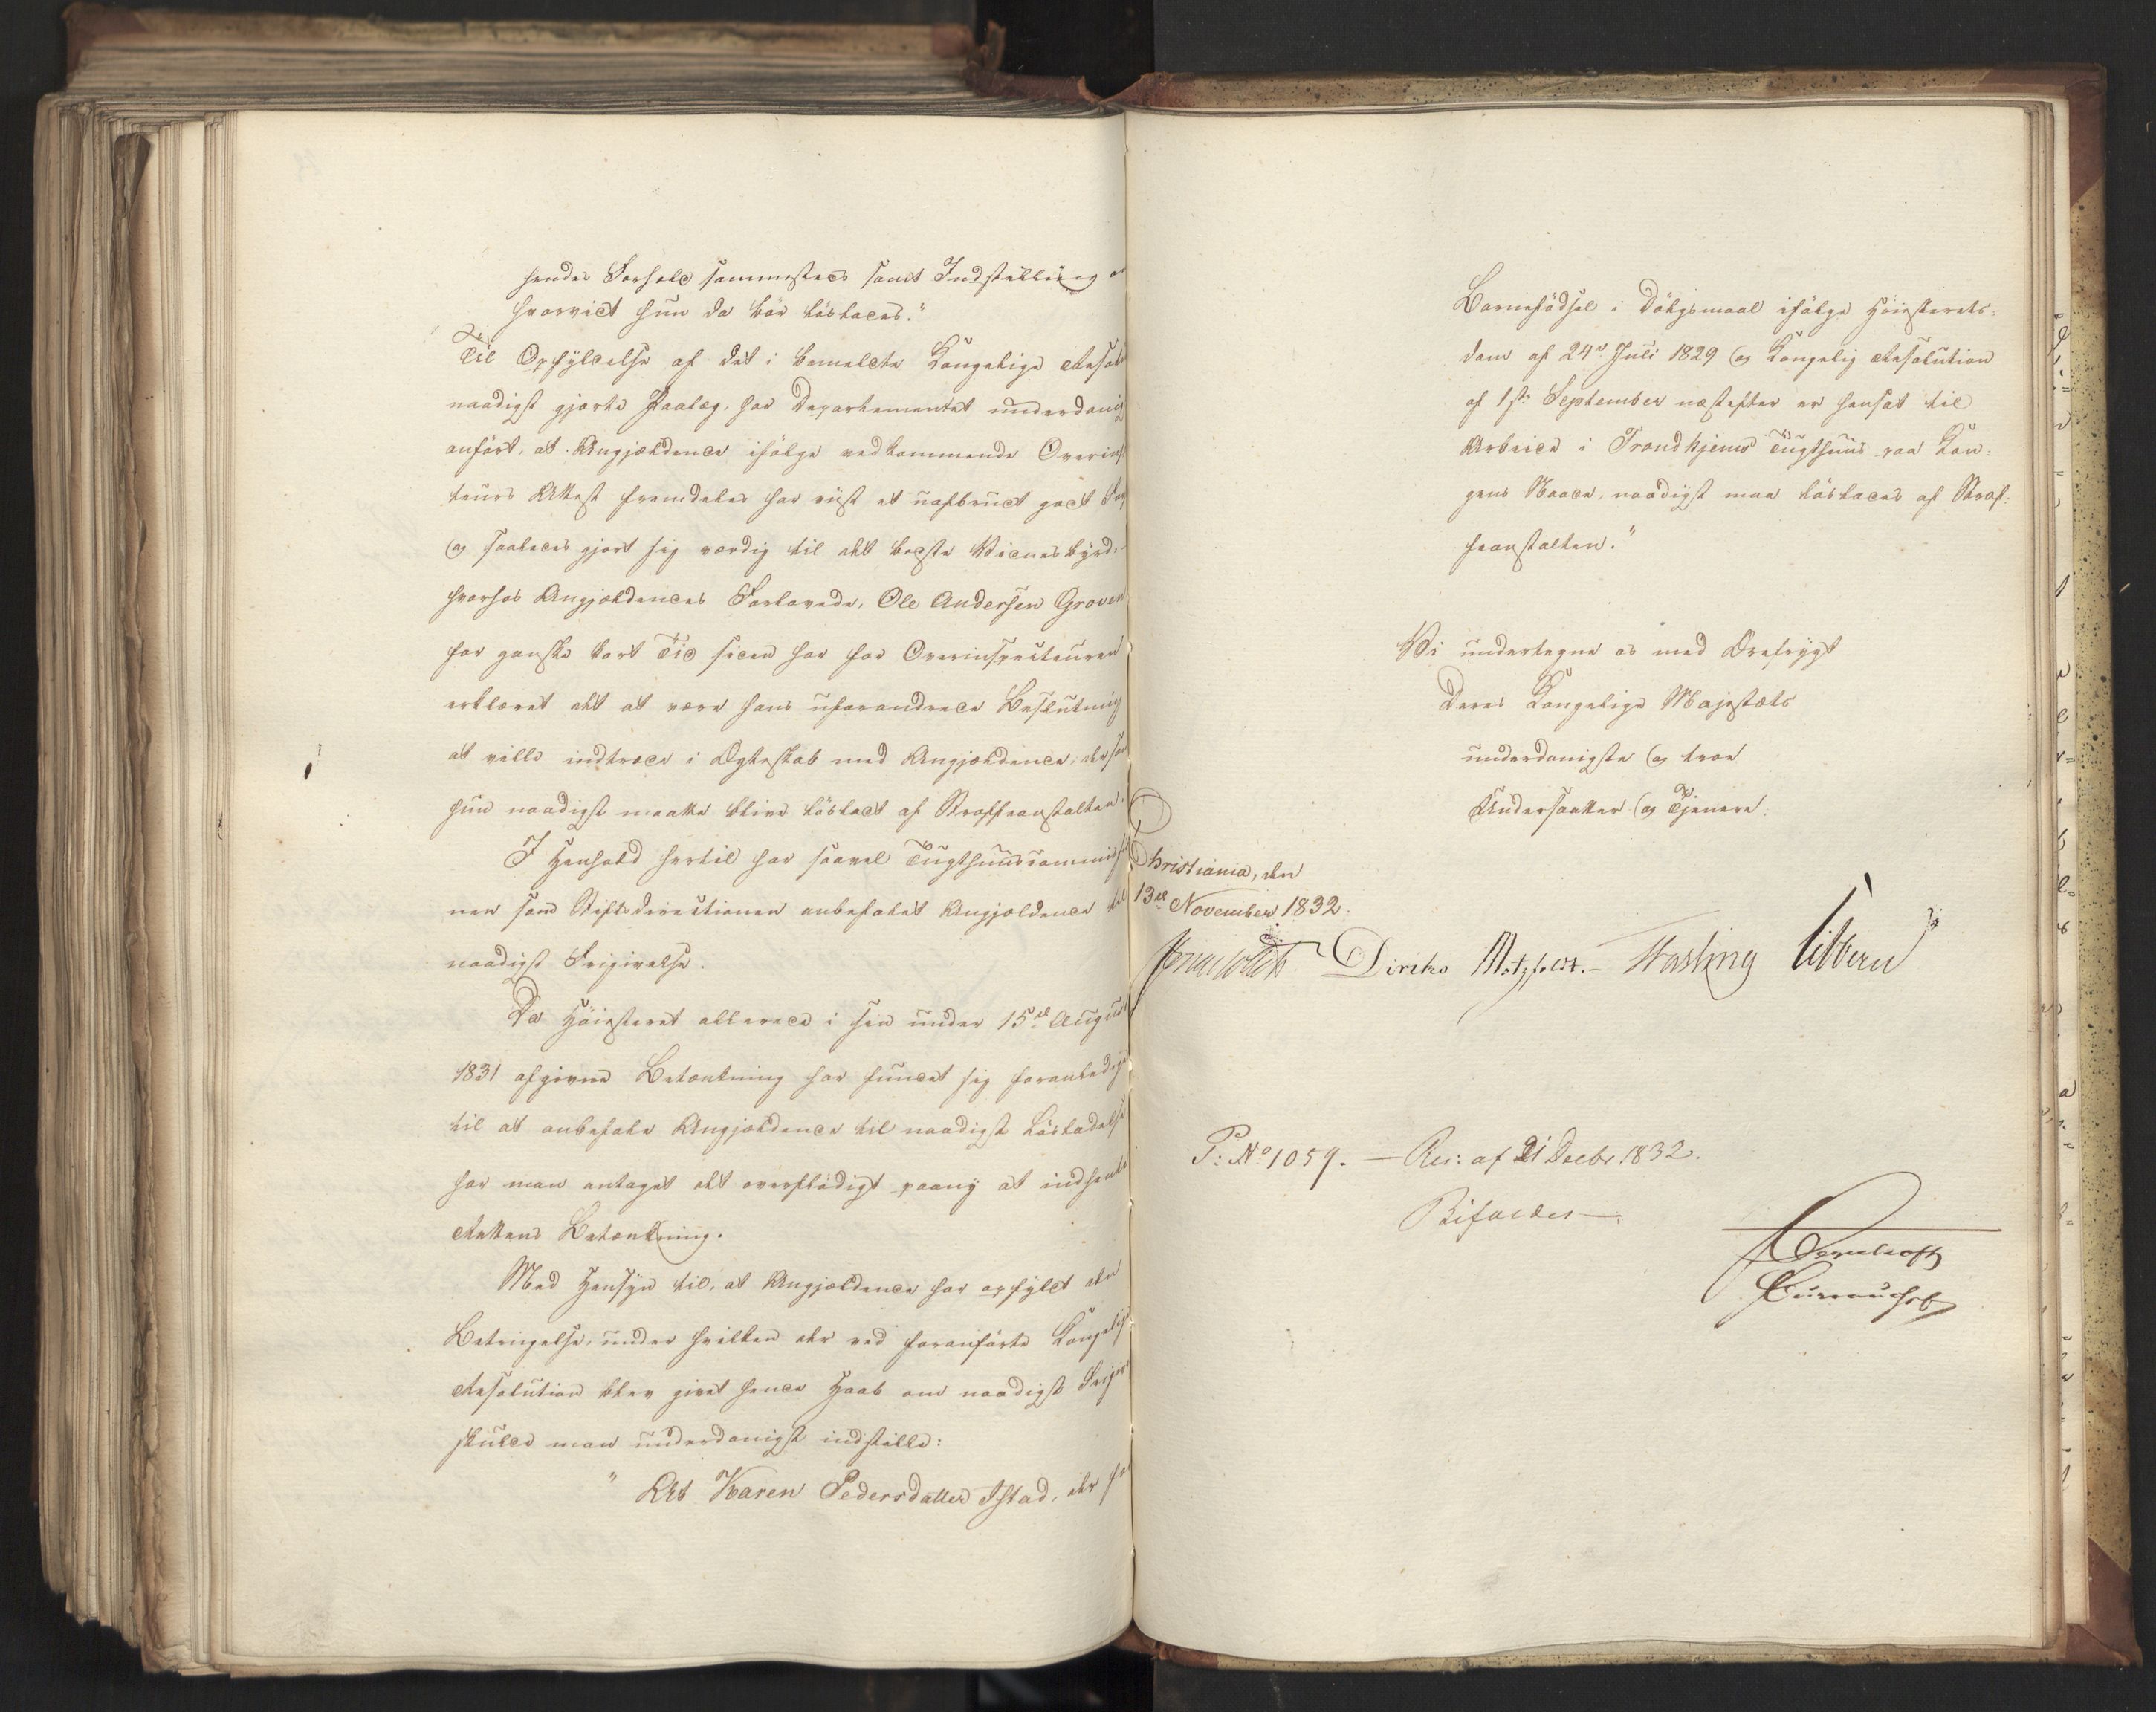 hendes Forhold sammesteds samt Indstilling
hvorvidt hun da bör löslades."
Til Opfyldelse af det i bemeldte Kongelige Resol
naadigst gjorte Paalæg, har Departementet underdanig
anfört, at Angjældende ifölge vedkommende Overins
teurs Attest fremdeles har viist et uafbrudt godt
og saaledes gjort sig værdig til det bedste Vidnesbyrd,
hvorhos Angjældendes Forlovede, Ole Andersen Groven
for ganske kort Tid siden har for Overinspecteuren
erklæret det at være hans uforandrede Beslutning
at ville indtræde i Ægteskab med Angjældende, dersom
hun naadigst maatte blive lösladt af Straffeanstalten.
I Henhold hertil har saavel Tugthuuscommis
nen som Stiftsdirectionen anbefalet Angjældende til
naadigst Frigivelse.
Da Höiesteret allerede i sin under 15de August
1831 afgivne Betænkning har fundet sig foranlediget
til at anbefale Angjældende til naadigst Lösladelse
har man antaget det overflödigt paany at indhente
Rettens Betænkning.
Med Hensyn til, at Angjældende har opfyldt den
Betingelse, under hvilken der ved foranförte Kongelige
Resolution blev givet hende Haab om naadigst Frigiv
skulde man underdanigst indstille:
" At Karen Pedersdatter Istad, der for
Barnefödsel i Dölgsmaal ifölge Höiesterets-
dom af 24de Juli 1829 og Kongelig Resolution
af 1ste September næstefter er hensat til
Arbeide i Trondhjems Tugthuus paa Kon-
gens Naade, naadigst maa löslades af Straf-
feanstalten."
Vi undertegne os med Ærefrygt
Deres Kongelige Majestæts
underdanigste og troe
Undersaatter og Tjenere.
Christiania, den
13de November 1832.
Diriks Motzfeldt. Fasting Vibe
P: No 1059. — Res: af 21 Decbr 1832.
Bifaldes —